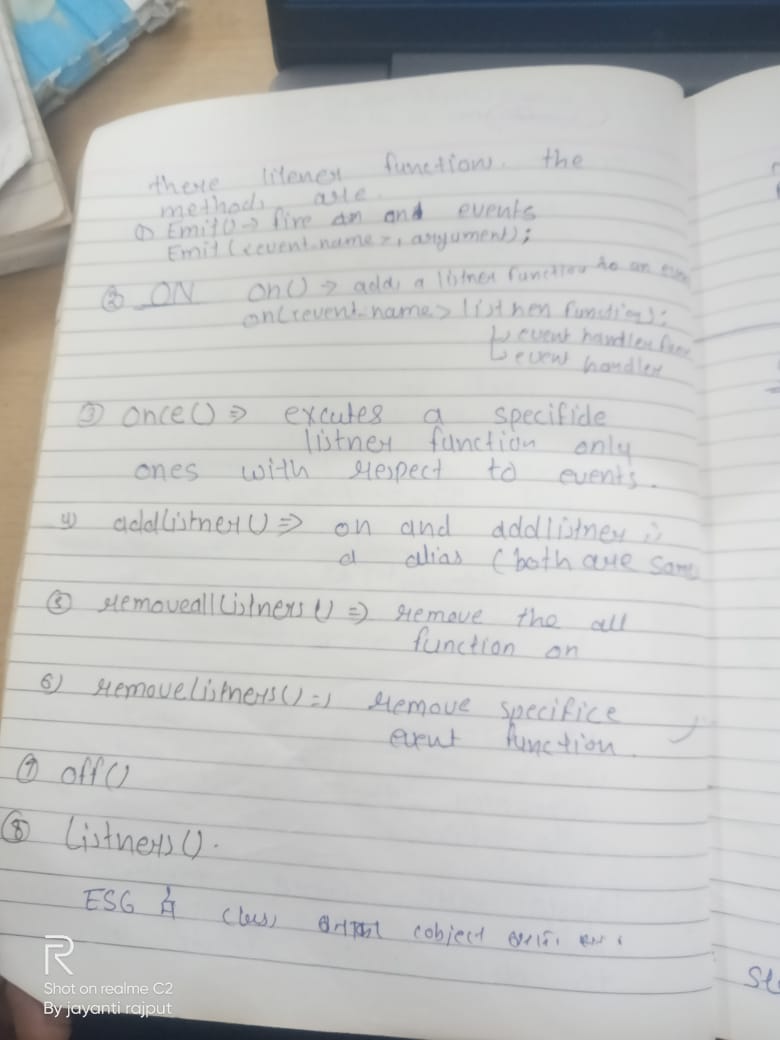 there litener function. the
methods are.
① Emit() → fire an and events
Emit(<event.name>, aryument);
② ON on() → adds a listner function to an
on(<event-name> listhen function);
↳ event handler func
↳ event handler
③ once() ⇒ excutes a specifide
listner function only
ones with respect to events.
4) addlistner() ⇒ on and addlistner is
a alias (both are same
⑤ removeallListners() ⇒ remove the all
function on
6) removelistners() => remove specifice
event function.
⑦ off()
⑧ Listners().
ESG में class cobject
Se
R
Shot on realme C2
By jayanti rajput